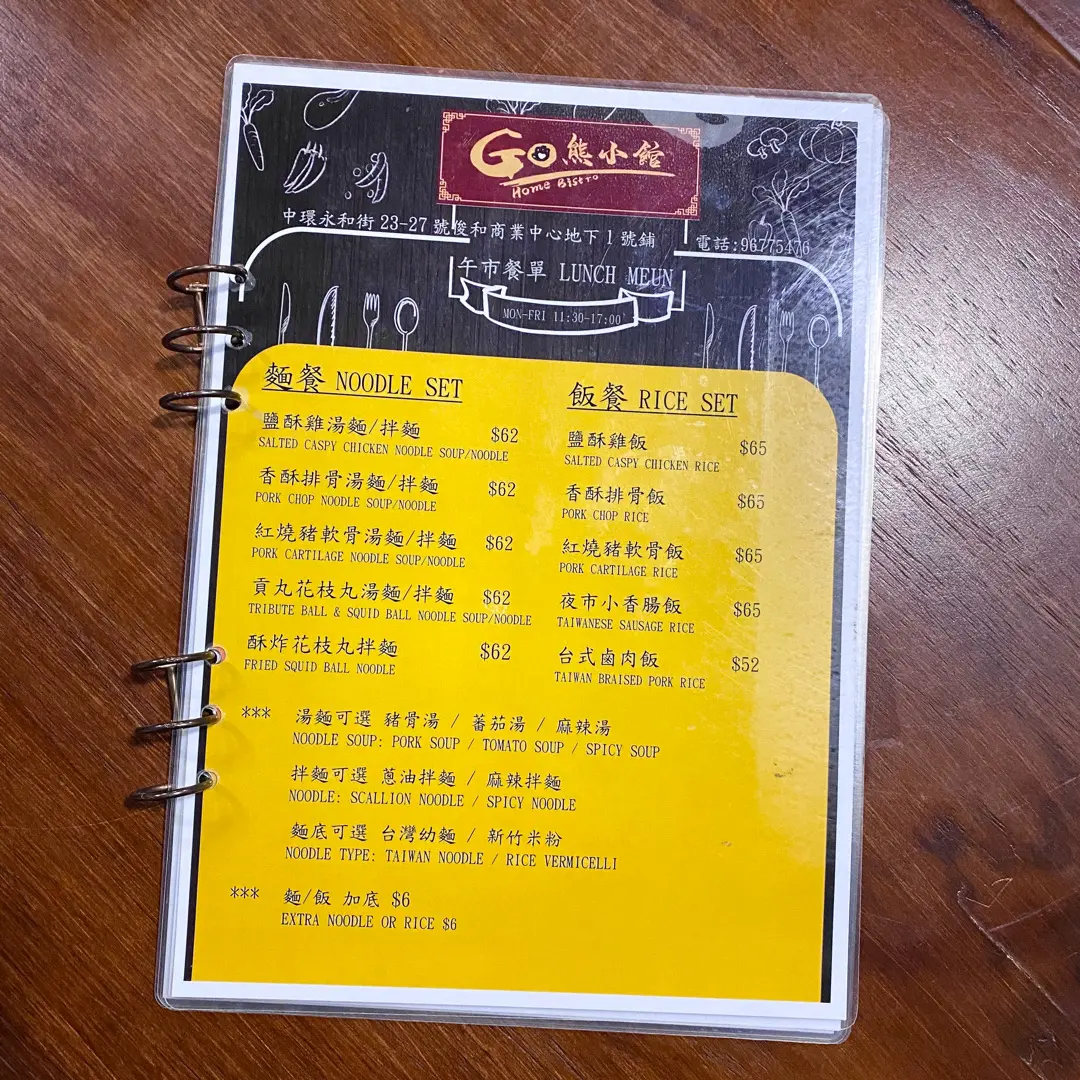 GO熊小館
Home Bistro
中環永和街 23-27 號俊和商業中心地下 1 號鋪
電話:96775476
午市餐單 LUNCH MEUN
MON-FRI 11:30-17:00
麵餐 NOODLE SET
鹽酥雞湯麵/拌麵 $62
SALTED CASPY CHICKEN NOODLE SOUP/NOODLE
香酥排骨湯麵/拌麵 $62
PORK CHOP NOODLE SOUP/NOODLE
紅燒豬軟骨湯麵/拌麵 $62
PORK CARTILAGE NOODLE SOUP/NOODLE
貢丸花枝丸湯麵/拌麵 $62
TRIBUTE BALL & SQUID BALL NOODLE SOUP/NOODLE
酥炸花枝丸拌麵 $62
FRIED SQUID BALL NOODLE
飯餐 RICE SET
鹽酥雞飯 $65
SALTED CASPY CHICKEN RICE
香酥排骨飯 $65
PORK CHOP RICE
紅燒豬軟骨飯 $65
PORK CARTILAGE RICE
夜市小香腸飯 $65
TAIWANESE SAUSAGE RICE
台式鹵肉飯 $52
TAIWAN BRAISED PORK RICE
*** 湯麵可選 豬骨湯 / 蕃茄湯 / 麻辣湯
NOODLE SOUP: PORK SOUP / TOMATO SOUP / SPICY SOUP
拌麵可選 蔥油拌麵 / 麻辣拌麵
NOODLE: SCALLION NOODLE / SPICY NOODLE
麵底可選 台灣幼麵 / 新竹米粉
NOODLE TYPE: TAIWAN NOODLE / RICE VERMICELLI
*** 麵/飯 加底 $6
EXTRA NOODLE OR RICE $6